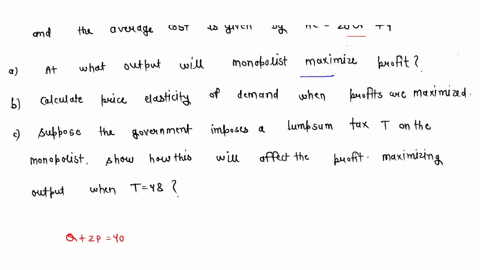 and the average cost is given by AC =
a) At what output will monopolist maximize profit?
b) Calculate price elasticity of demand when profits are maximized.
c) Suppose the government imposes a lumpsum tax T on the
monopolist, show how this will affect the profit-maximizing
output when T=48?
Q+2P=40